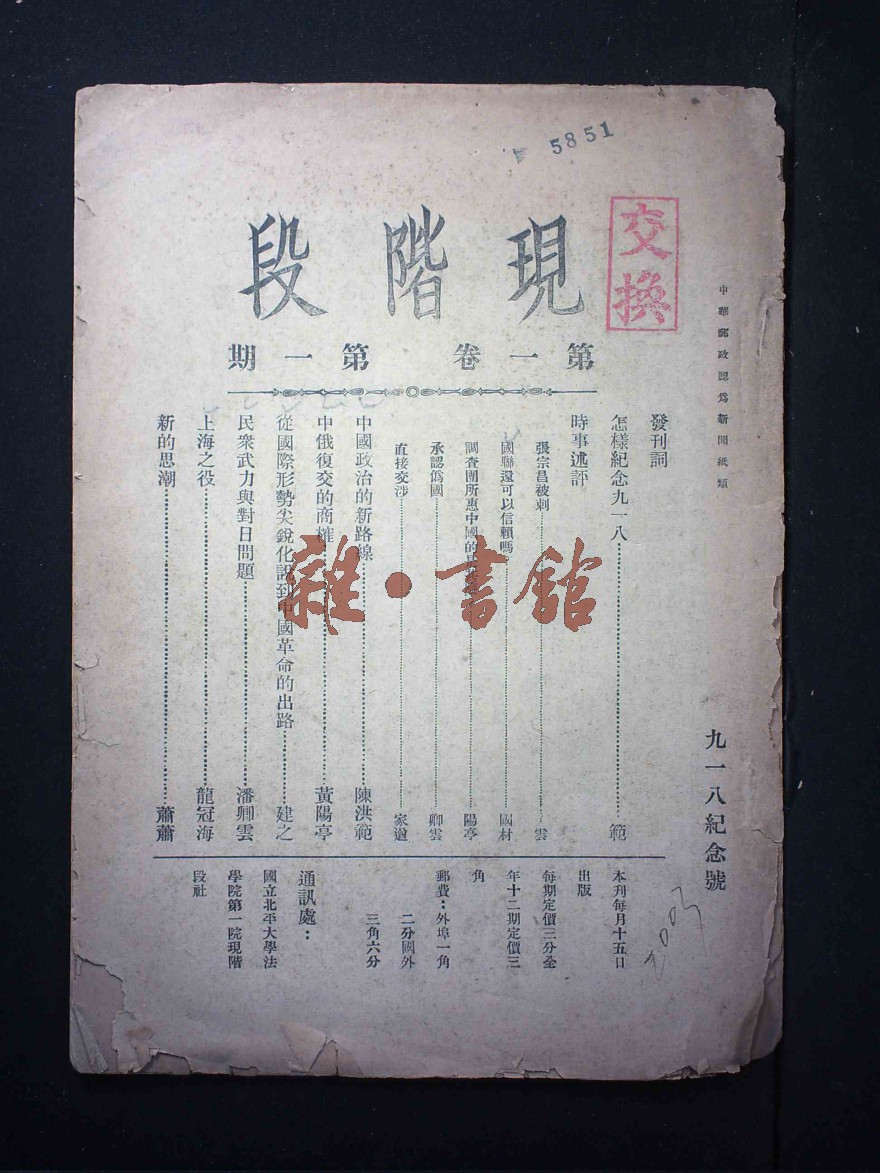 5851
交換
現階段
第一卷 第一期
中華郵政認爲新聞紙類
九一八紀念號
發刊詞
怎樣紀念九一八……範
時事述評
張宗昌被刺……雲
國聯還可以信賴嗎……國材
調查團所惠中國的……陽亭
承認僞國……卿雲
直接交涉……家遒
中國政治的新路線……陳洪範
中俄復交的商榷……黃陽亭
從國際形勢尖銳化說到中國革命的出路……建之
民衆武力與對日問題……潘卿雲
上海之役……龍冠海
新的思潮……蕭蕭
本刊每月十五日
出版
每期定價三分全
年十二期定價三
角
郵費：外埠一角
二分國外
三角六分
通訊處：
國立北平大學法
學院第一院現階
段社
雜·書館